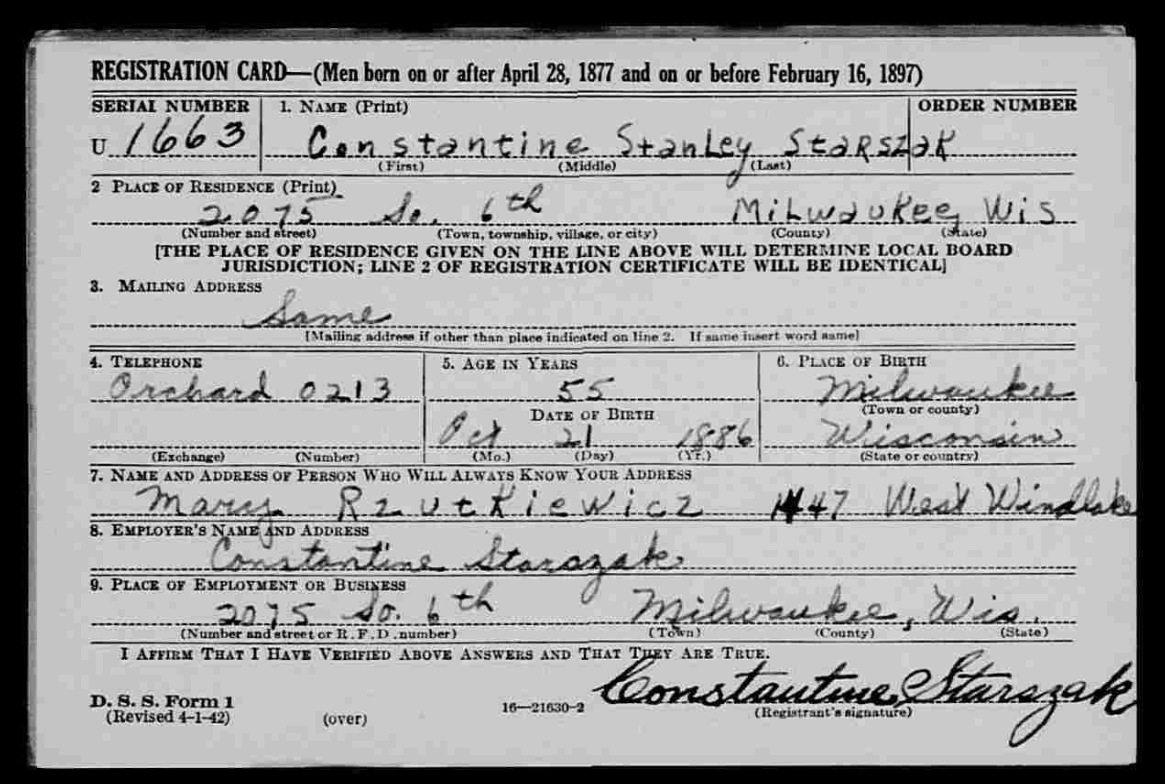 REGISTRATION CARD—(Men born on or after April 28, 1877 and on or before February 16, 1897)
SERIAL NUMBER 1. NAME (Print) ORDER NUMBER
U 1663 Constantine Stanley Starszak
(First) (Middle) (Last)
2 PLACE OF RESIDENCE (Print)
2075 So. 6th Milwaukee, Wis
(Number and street) (Town, township, village, or city) (County) (State)
[THE PLACE OF RESIDENCE GIVEN ON THE LINE ABOVE WILL DETERMINE LOCAL BOARD
JURISDICTION; LINE 2 OF REGISTRATION CERTIFICATE WILL BE IDENTICAL]
3. MAILING ADDRESS
Same
[Mailing address if other than place indicated on line 2. If same insert word same]
4. TELEPHONE 5. AGE IN YEARS 6. PLACE OF BIRTH
Orchard 0213 55 Milwaukee
DATE OF BIRTH (Town or county)
Oct 21 1886 Wisconsin
(Exchange) (Number) (Mo.) (Day) (Yr.) (State or country)
7. NAME AND ADDRESS OF PERSON WHO WILL ALWAYS KNOW YOUR ADDRESS
Mary Rzutkiewicz 47 West Windlake
8. EMPLOYER'S NAME AND ADDRESS
Constantine Starszak
9. PLACE OF EMPLOYMENT OR BUSINESS
2075 So. 6th Milwaukee, Wis.
(Number and street or R. F. D. number) (Town) (County) (State)
I AFFIRM THAT I HAVE VERIFIED ABOVE ANSWERS AND THAT THEY ARE TRUE.
Constantine Starszak
D. S. S. Form 1
(Revised 4-1-42) (over) 16—21630-2 (Registrant's signature)